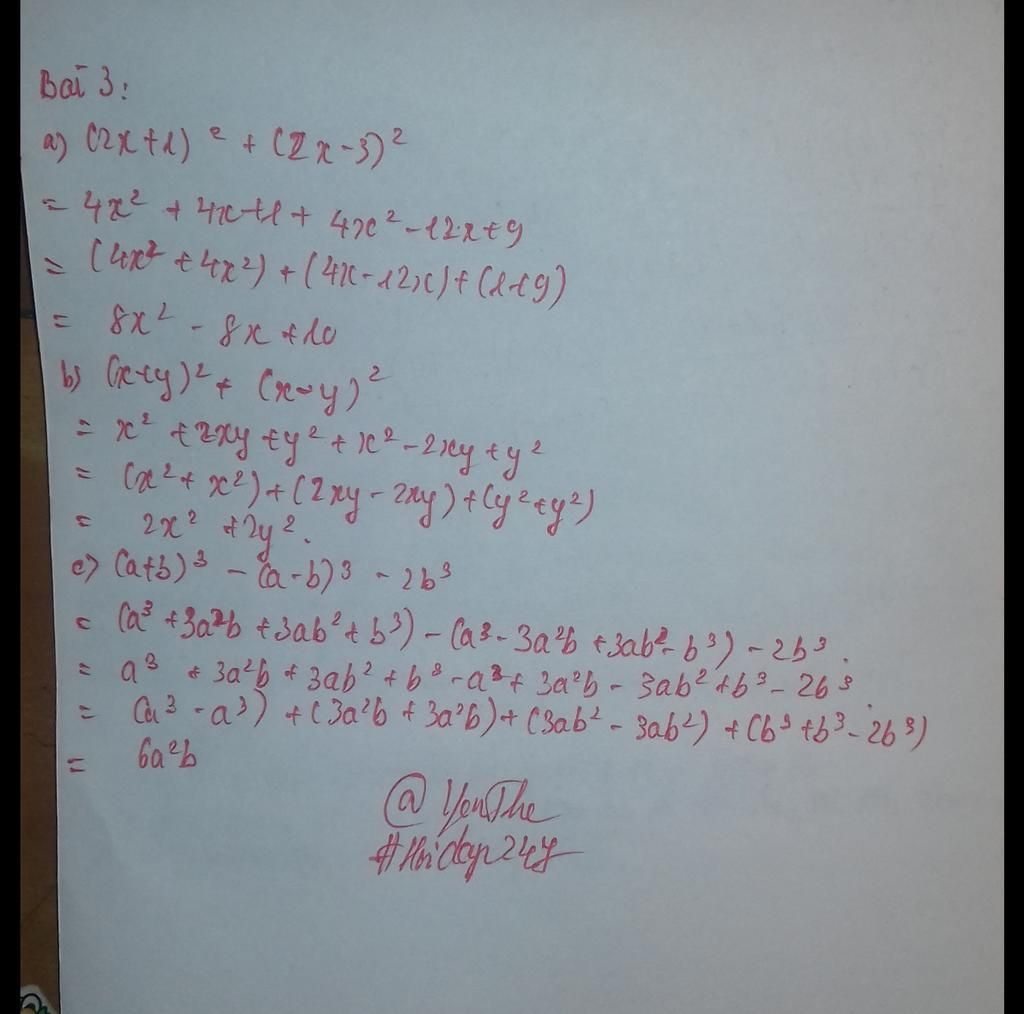 Bài 3:
a) (2x+1)² + (2x-3)²
= 4x² + 4x+1 + 4x² -12x+9
= (4x² + 4x²) + (4x-12x)+(1+9)
= 8x² - 8x +10
b) (x+y)² + (x-y)²
= x² +2xy +y² + x² -2xy +y²
= (x² + x²)+(2xy - 2xy)+(y²+y²)
= 2x² +2y².
c) (a+b)³ - (a-b)³ - 2b³
= (a³ +3a²b +3ab² + b³) - (a³ - 3a²b +3ab² - b³) - 2b³.
= a³ + 3a²b + 3ab² + b³ - a³ + 3a²b - 3ab² +b³ - 2b³.
= (a³ - a³) + (3a²b + 3a²b) + (3ab² - 3ab²) + (b³ +b³ - 2b³)
= 6a²b
@YenThe
#Hoidap247